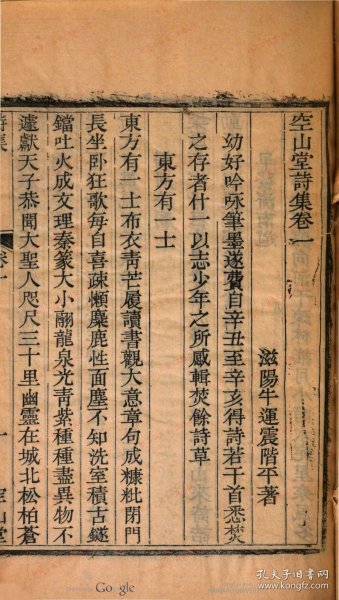 空山堂詩集卷一
滋陽牛運震階平著
幼好吟咏筆墨遂費自辛丑至辛亥得詩若干首悉焚
之存者什一以志少年之所感輯焚餘詩草
東方有一士
東方有一士布衣青芒履讀書觀大意章句成糠粃閉門
長坐卧狂歌每自喜疎懶麋鹿性面塵不知洗室積古鐩
鐺吐火成文理秦篆大小翮龍泉光青紫種種盡異物不
遽獻天子恭聞大聖人咫尺三十里幽靈在城北松柏蒼
詩集
卷一
一
空山堂
Google
孔夫子旧书网